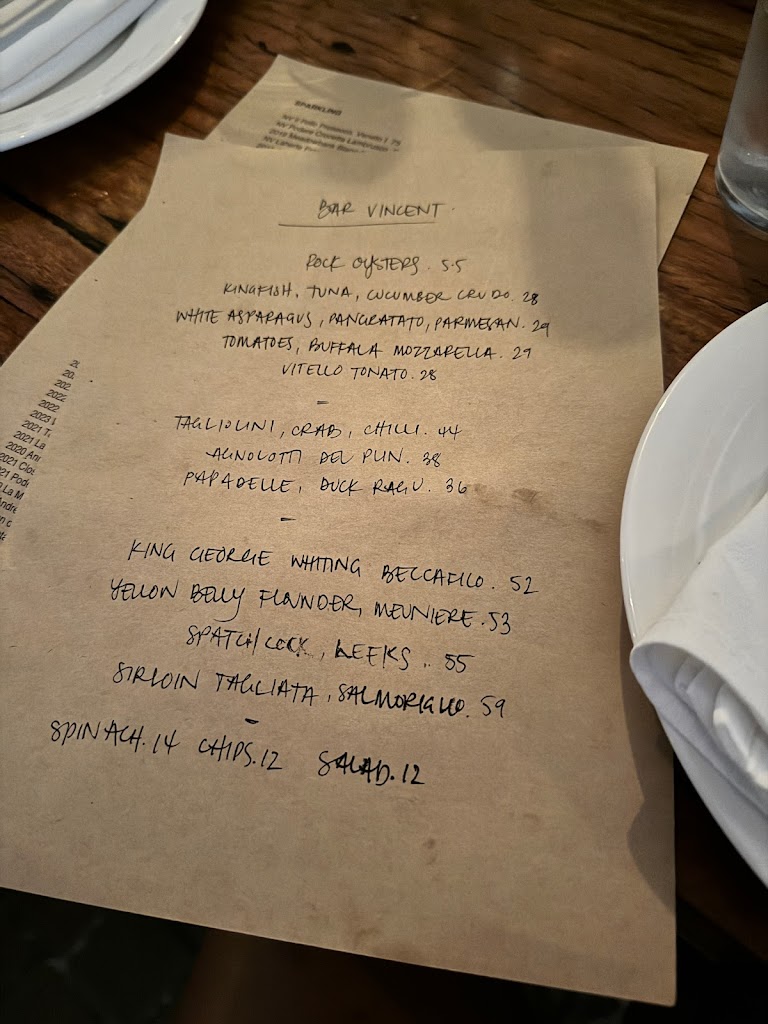 SPARKLING
BAR VINCENT
ROCK OYSTERS. 5.5
KINGFISH, TUNA, CUCUMBER CRUDO. 28
WHITE ASPARAGUS, PANGRATATO, PARMESAN. 29
TOMATOES, BUFFALA MOZZARELLA. 29
VITELLO TONATO. 28
–
TAGLIOLINI, CRAB, CHILLI. 44
AGNOLOTTI DEL PLIN. 38
PAPADELLE, DUCK RAGU. 36
–
KING GEORGE WHITING BECCAFICO. 52
YELLOW BELLY FLOUNDER, MEUNIERE. 53
SPATCHCOCK, LEEKS.. 55
SIRLOIN TAGLIATA, SALMORIGLIO. 59
–
SPINACH. 14 CHIPS. 12 SALAD. 12
202
2022
2022
2023
2021
2021 La
2020
2021